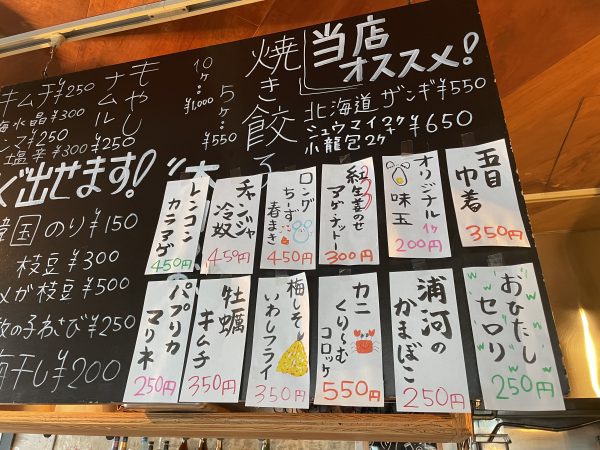 当店
オススメ!
北海道 ザンギ ¥550
シュウマイ2ケ
小籠包2ケ
+ ¥650
焼き餃子
10ケ… ¥1,000
5ケ… ¥550
もやし
ナムル
¥250
キムチ ¥250
水晶 ¥300
塩辛 ¥300
ぐ出せます!
韓国のり ¥150
枝豆 ¥300
枝豆 ¥500
数の子わさび ¥250
梅干し ¥200
五目
巾着
350円
オリジナル
味玉
1ケ
200円
紅生姜のせ
アゲナットー
300円
ロング
ちーず
春まき
450円
チャンジャ
冷奴
450円
レンコン
カニアゲ
450円
おひたし
セロリ
250円
浦河の
かまぼこ
250円
カニ
くりーむ
コロッケ
550円
梅しそ
いわしフライ
350円
牡蠣
キムチ
350円
パプリカ
マリネ
250円